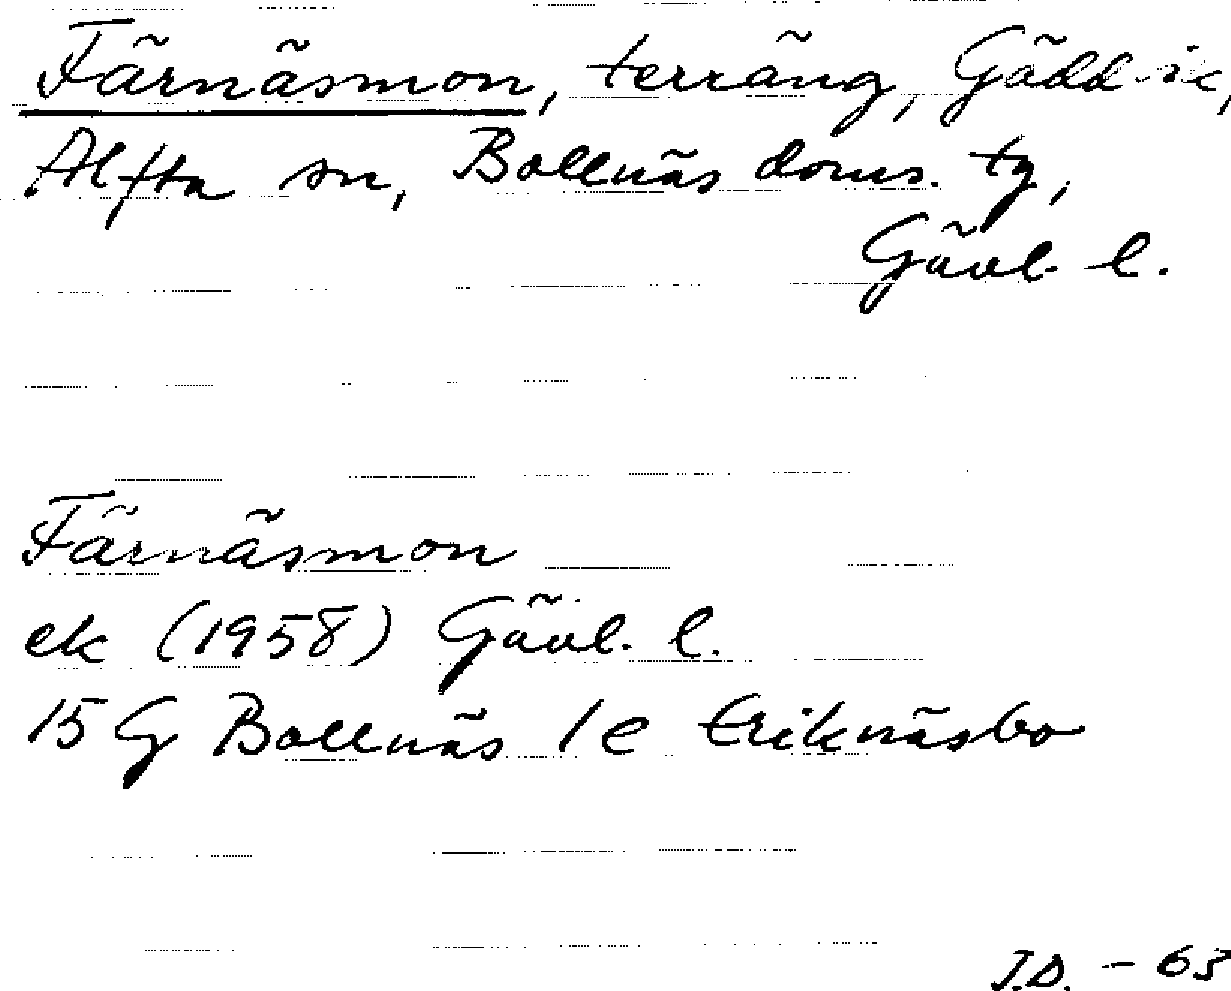 Färnäsmon, terräng, Gäddvik,
Alfta sn, Bollnäs doms. tg,
Gävl. l.
Färnäsmon
ek (1958) Gävl. l.
15 G Bollnäs 1 e Eriknäsbo
J.D. - 63